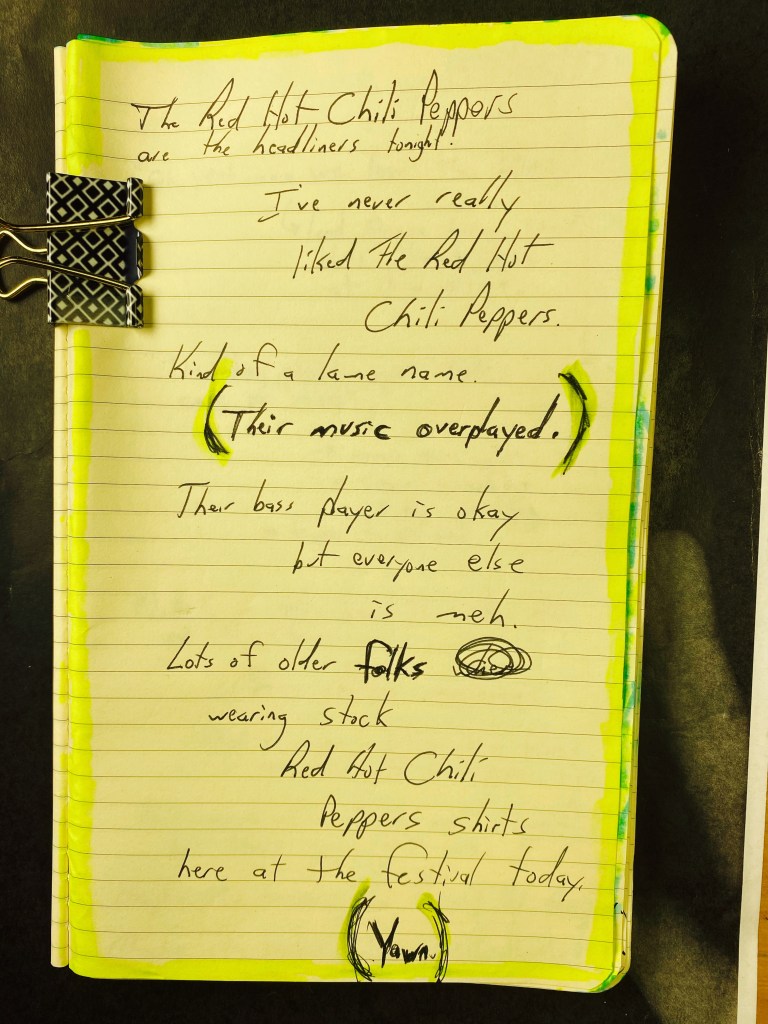 The Red Hot Chili Peppers
are the headliners tonight.
I've never really
liked the Red Hot
Chili Peppers.
Kind of a lame name.
(Their music overplayed.)
Their bass player is okay
but everyone else
is meh.
Lots of older folks
wearing stock
Red Hot Chili
Peppers shirts
here at the festival today.
(Yawn.)